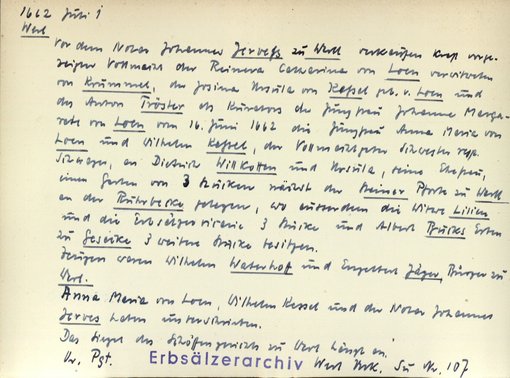 1662 Juli 1
Werl
Vor dem Notar Johannes Jerves zu Werl verkaufen kraft vorge-
zeigter Vollmacht der Reinera Catharina von Loen verwitweten
von Krummel, der Josina Ursula von Kessel geb. v. Loen und
des Anton Tröster als Kurators der Jungfrau Johanna Marga-
rete von Loen vom 16. Juni 1662 die Jungfrau Anna Maria von
Loen und Wilhelm Kessel, der Vollmachtgeber Schwester resp.
Schwager, an Dietrich Willkotten und Ursula, seine Ehefrau,
einen Garten von 3 Stücken nächst der Steiner Pforte zu Werl
an der Ruhrbecke gelegen, wo ausserdem die Witwe Lilien
und die Erbsälzer 3 Stücke und Albert Brüks Erben
zu Geseke 3 weitere Stücke besitzen.
Zeugen waren Wilhelm Waterhoff und Engelbert Jäger, Bürger zu
Werl.
Anna Maria von Loen, Wilhelm Kessel und der Notar Johannes
Jerves haben unterschrieben.
Das Siegel des Schöffengerichts zu Werl hängt an.
Or. Pgt. Erbsälzerarchiv Werl Urk. Nr. 107